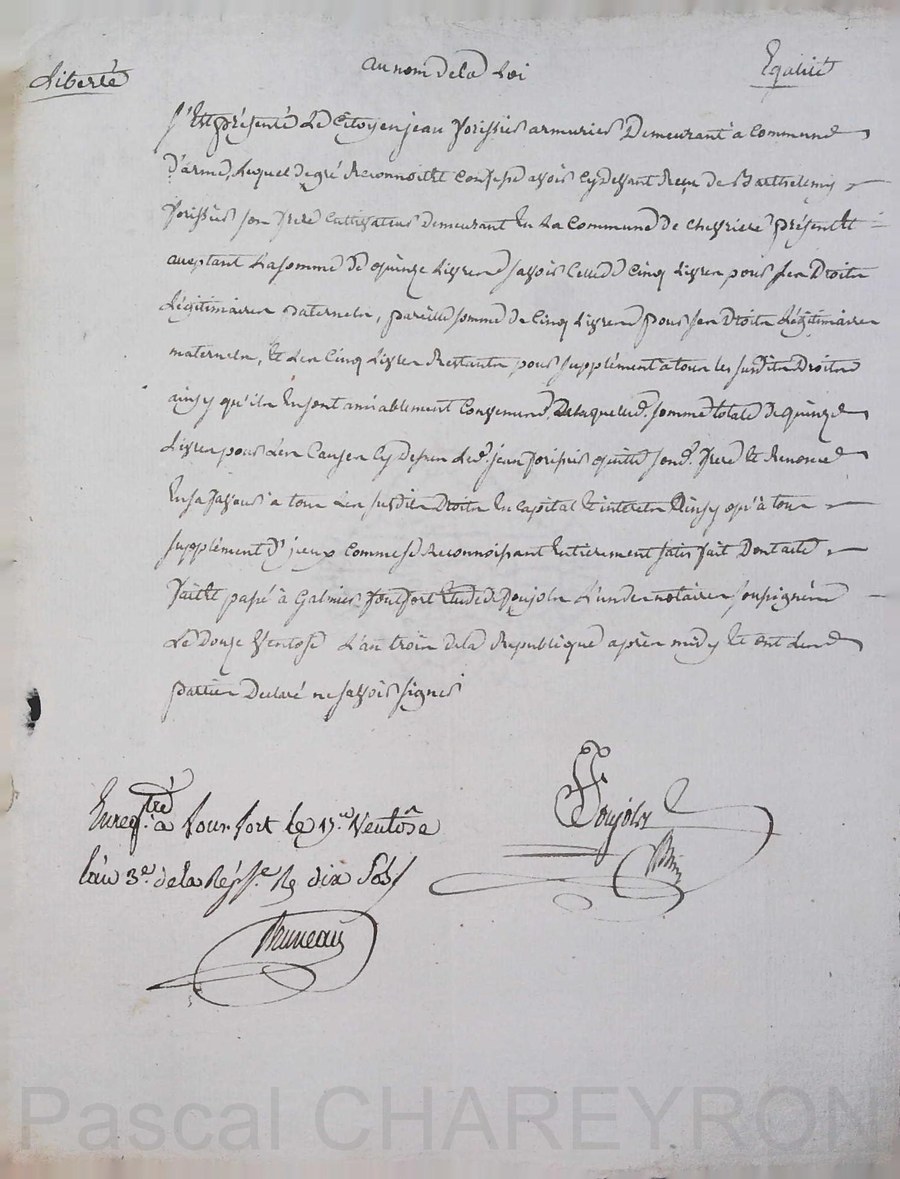 Liberté au nom de la Loi Egalité
s'Est présenté Le Citoyen jean Forissier armurier Demeurant à Commune
D'arme, Lequel de gré Reconnoit et Confesse avoir Cy devant Reçu de Barthelemy
Forissier son frere Cultivateur demeurant En La Commune de Chevriere présent et
aceptant La somme de quinze Livres savoir Celle de Cinq Livres pour ses Droits
Légitimaires paternels, pareille somme de Cinq Livres pour ses Droits Légitimaires
maternels, et Les Cinq Livres Restants pour supplément à tous les susdits Droits
ainsy qu'ils En sont amiablement Convenus, De laquelle somme totale de quinze
Livres pour Les Causes Cy dessus Led. jean forissier quitte sond. frere et Renonce
En sa faveur à tous Les susdits Droits En Capital et interets Ainsy qu'à tous
supplément D'iceux Comme se Reconnoissant Entierement satisfait Dont acte
fait et passé à Galmier Fontfort Etude de Poujols L'un des notaires soussignés
Le Douze Ventose L'an trois de la Republique après midy et ont Les
parties Declaré ne savoir signer
Poujols
Enregtré. à fonfort le 17.e Ventôse
l'an 3e. de la Rép. R dix Sols
Bruneau